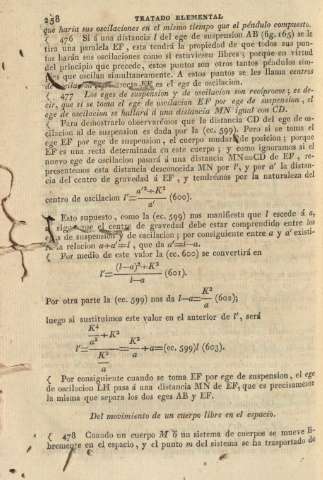 258 TRATADO ELEMENTAL
que haria sus oscilaciones en el mismo tiempo que el péndulo compuesto.
ζ 476 Si á una distancia l del ege de suspension AB (fig. 165) se le
tira una paralela EF, esta tendrá la propiedad de que todos sus pun-
tos harán sus oscilaciones como si estuviesen libres; porque en virtud
del principio que precede, estos puntos son otros tantos péndulos sim-
que oscilan simultaneamente. A estos puntos se les llama centros
EF es el ege de oscilacion.
ζ 477 Los eges de suspension y de oscilacion son recíprocos; es de-
cir, que si se toma el ege de oscilacion EF por ege de suspension, el
ege de oscilacion se hallará á una distancia MN igual con CD.
Para demostrarlo observaremos que la distancia CD del ege de os-
cilacion al de suspension es dada por la (ec. 599). Pero si se toma el
ege EF por ege de suspension, el cuerpo mudará de posicion; porque
EF es una recta determinada en este cuerpo; y como ignoramos si el
nuevo ege de oscilacion pasará á una distancia MN=CD de EF, re-
presentemos esta distancia desconocida MN por l', y por a' la distan-
cia del centro de gravedad á EF, y tendrémos por la naturaleza del
centro de oscilacion l'= (a'²+K²)/a' (600).
Esto supuesto, como la (ec. 599) nos manifiesta que l escede á a,
que el centro de gravedad debe estar comprendido entre los
de suspension y de oscilacion; por consiguiente entre a y a' existi-
la relacion a+a'=l, que da a'=l-a.
ζ Por medio de este valor la (ec. 600) se convertirá en
l'= ((l-a)²+K²)/(l-a) (601).
Por otra parte la (ec. 599) nos da l-a= K²/a (602);
luego si sustituimos este valor en el anterior de l', será
l'= (K⁴/a²+K²)/(K²/a) = K²/a +a=(ec. 599)l (603).
ζ Por consiguiente cuando se toma EF por ege de suspension, el ege
de oscilacion LH pasa á una distancia MN de EF, que es precisamente
la misma que separa los dos eges AB y EF.
Del movimiento de un cuerpo libre en el espacio.
ζ 478 Cuando un cuerpo M ó un sistema de cuerpos se mueve li-
bremente en el espacio, y el punto m del sistema se ha trasportado de